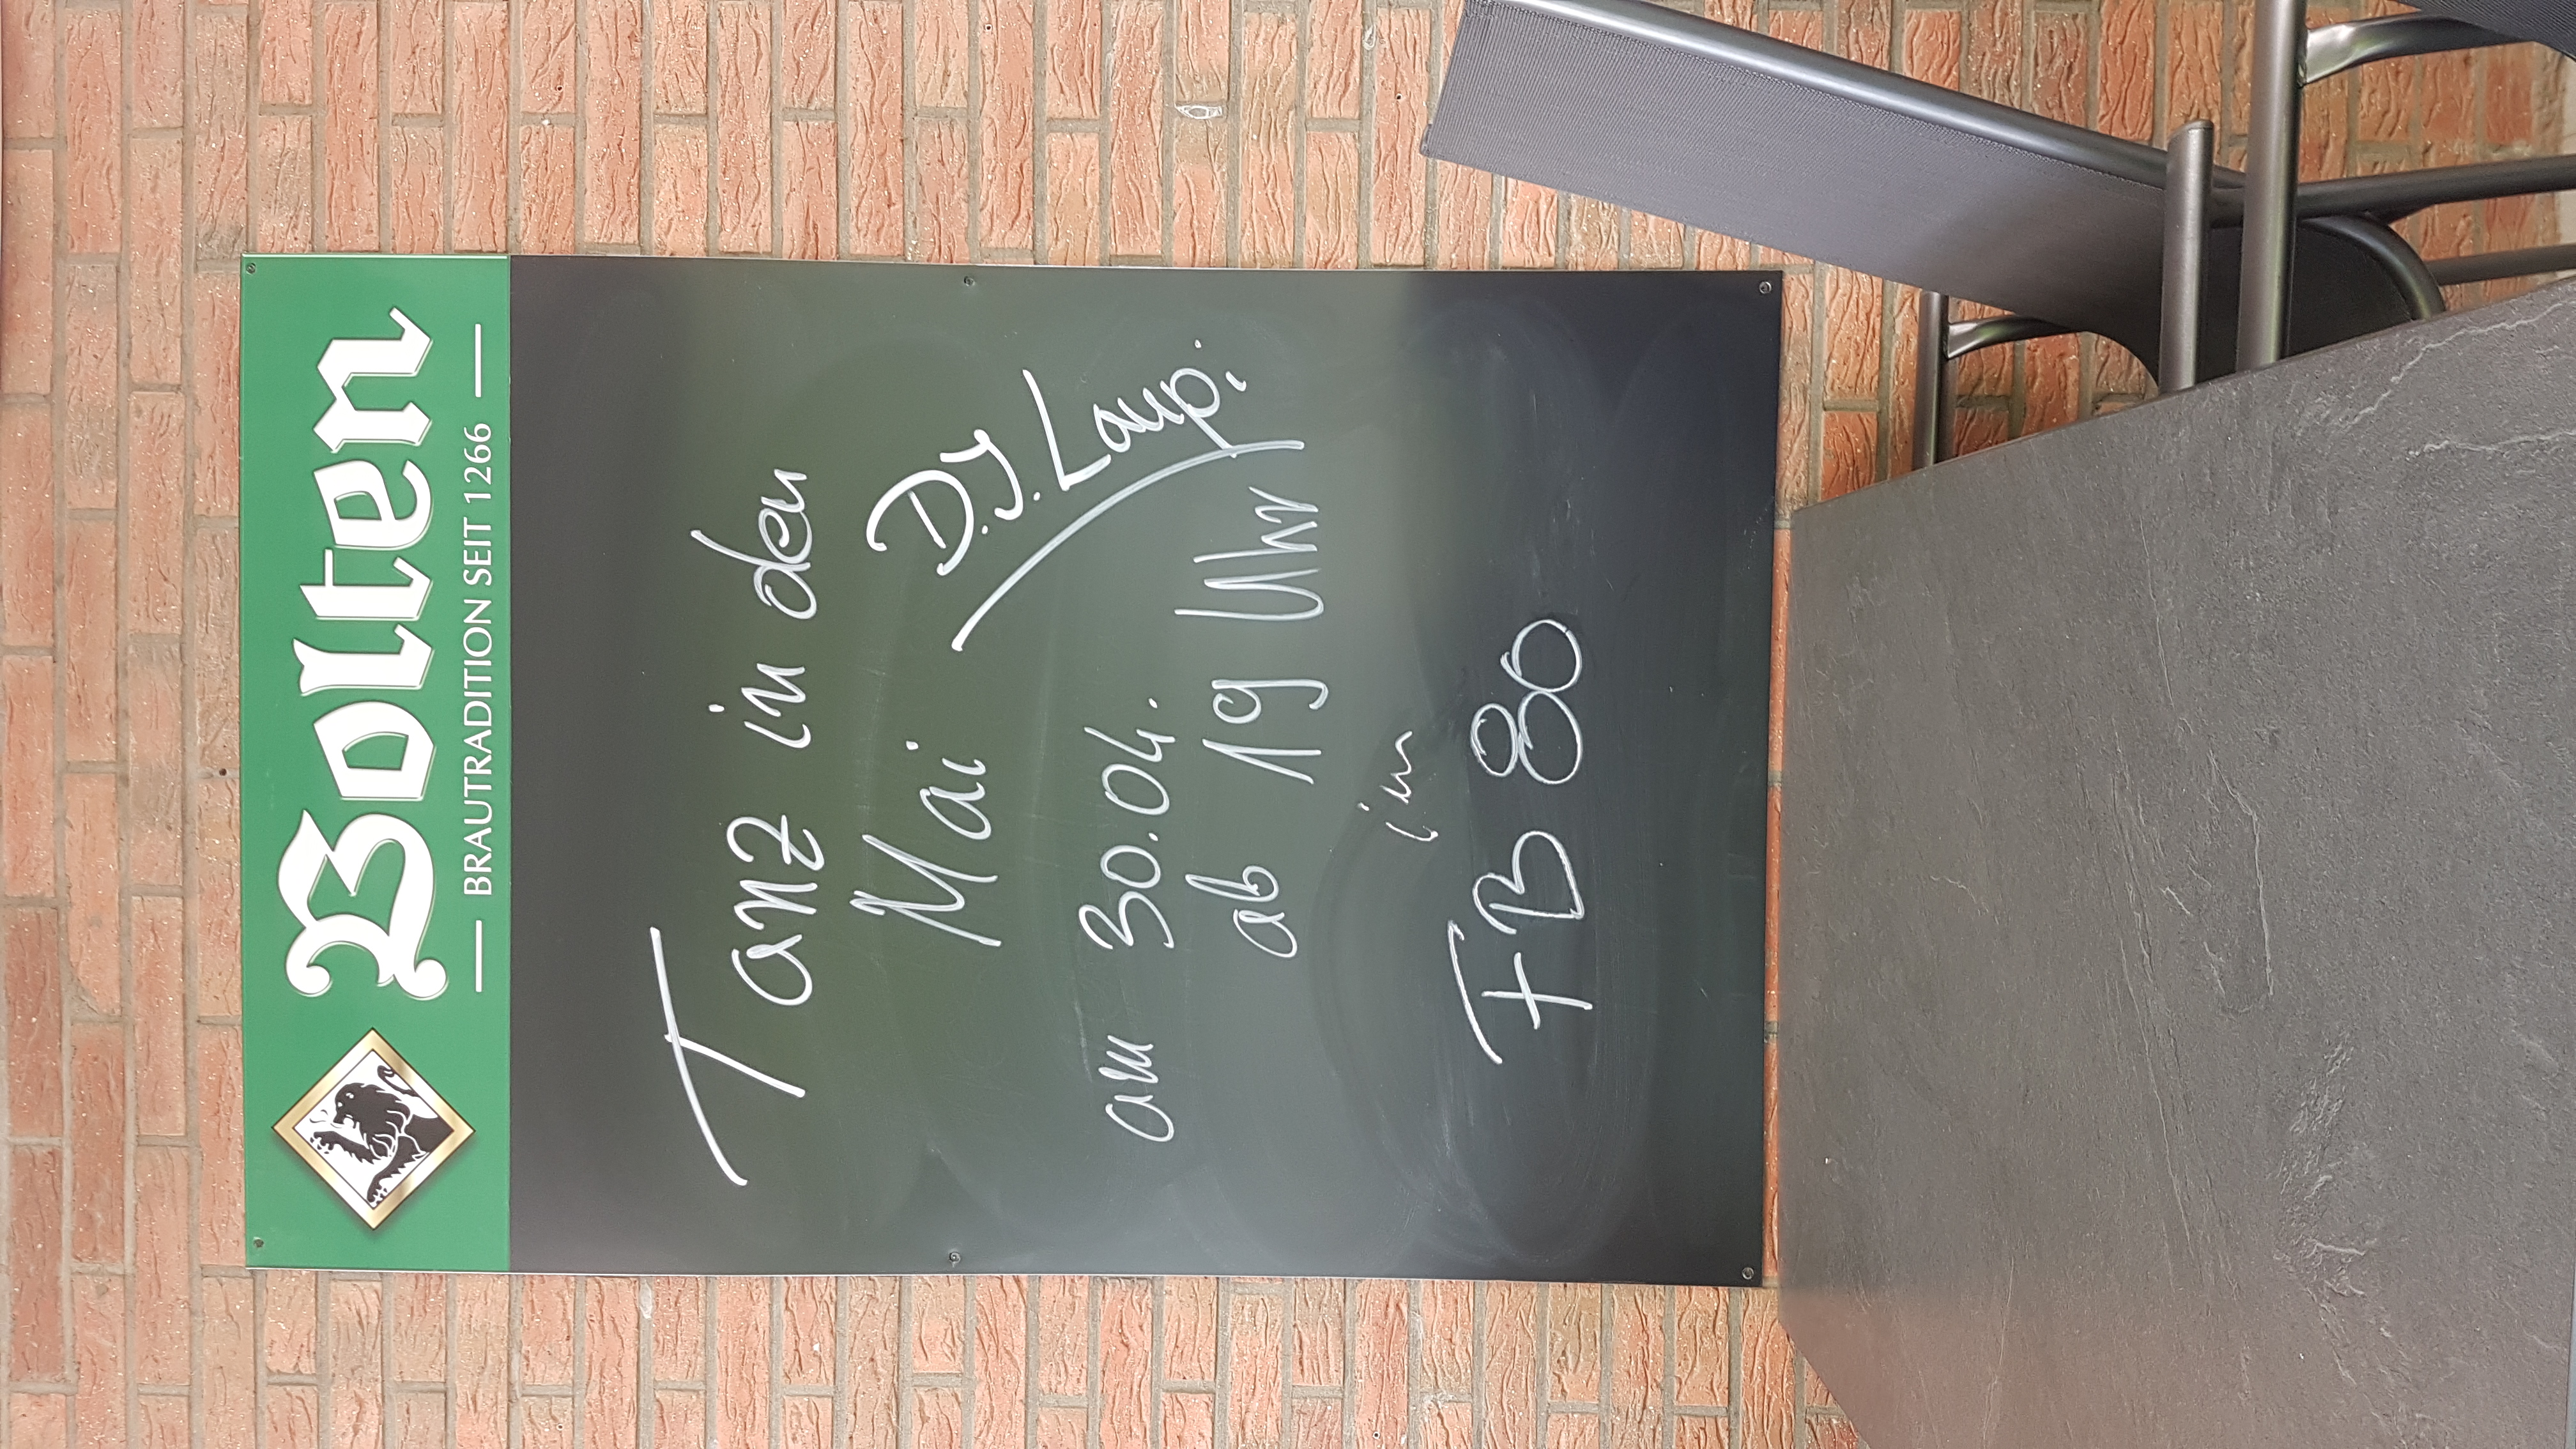 Bolten
BRAUTRADITION SEIT 1266
Tanz in den
Mai
D.J.
am 30.04.
ab 19 Uhr
im
FB 80